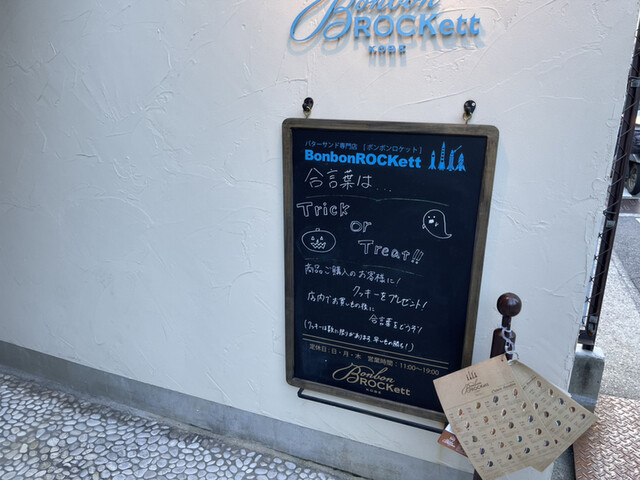 Bonbon
ROCKett
KOBE
バターサンド専門店 [ボンボンロケット]
BonbonROCKett
合言葉は...
Trick
or
Treat!!
商品ご購入のお客様に!
クッキーをプレゼント!
店内でお買いもの後に
合言葉をどうぞ!
(クッキーは数に限りがあります。早いもの勝ち!)
定休日:日・月・木 営業時間:11:00〜19:00
Bonbon
ROCKett
KOBE
Bonbon
ROCKett